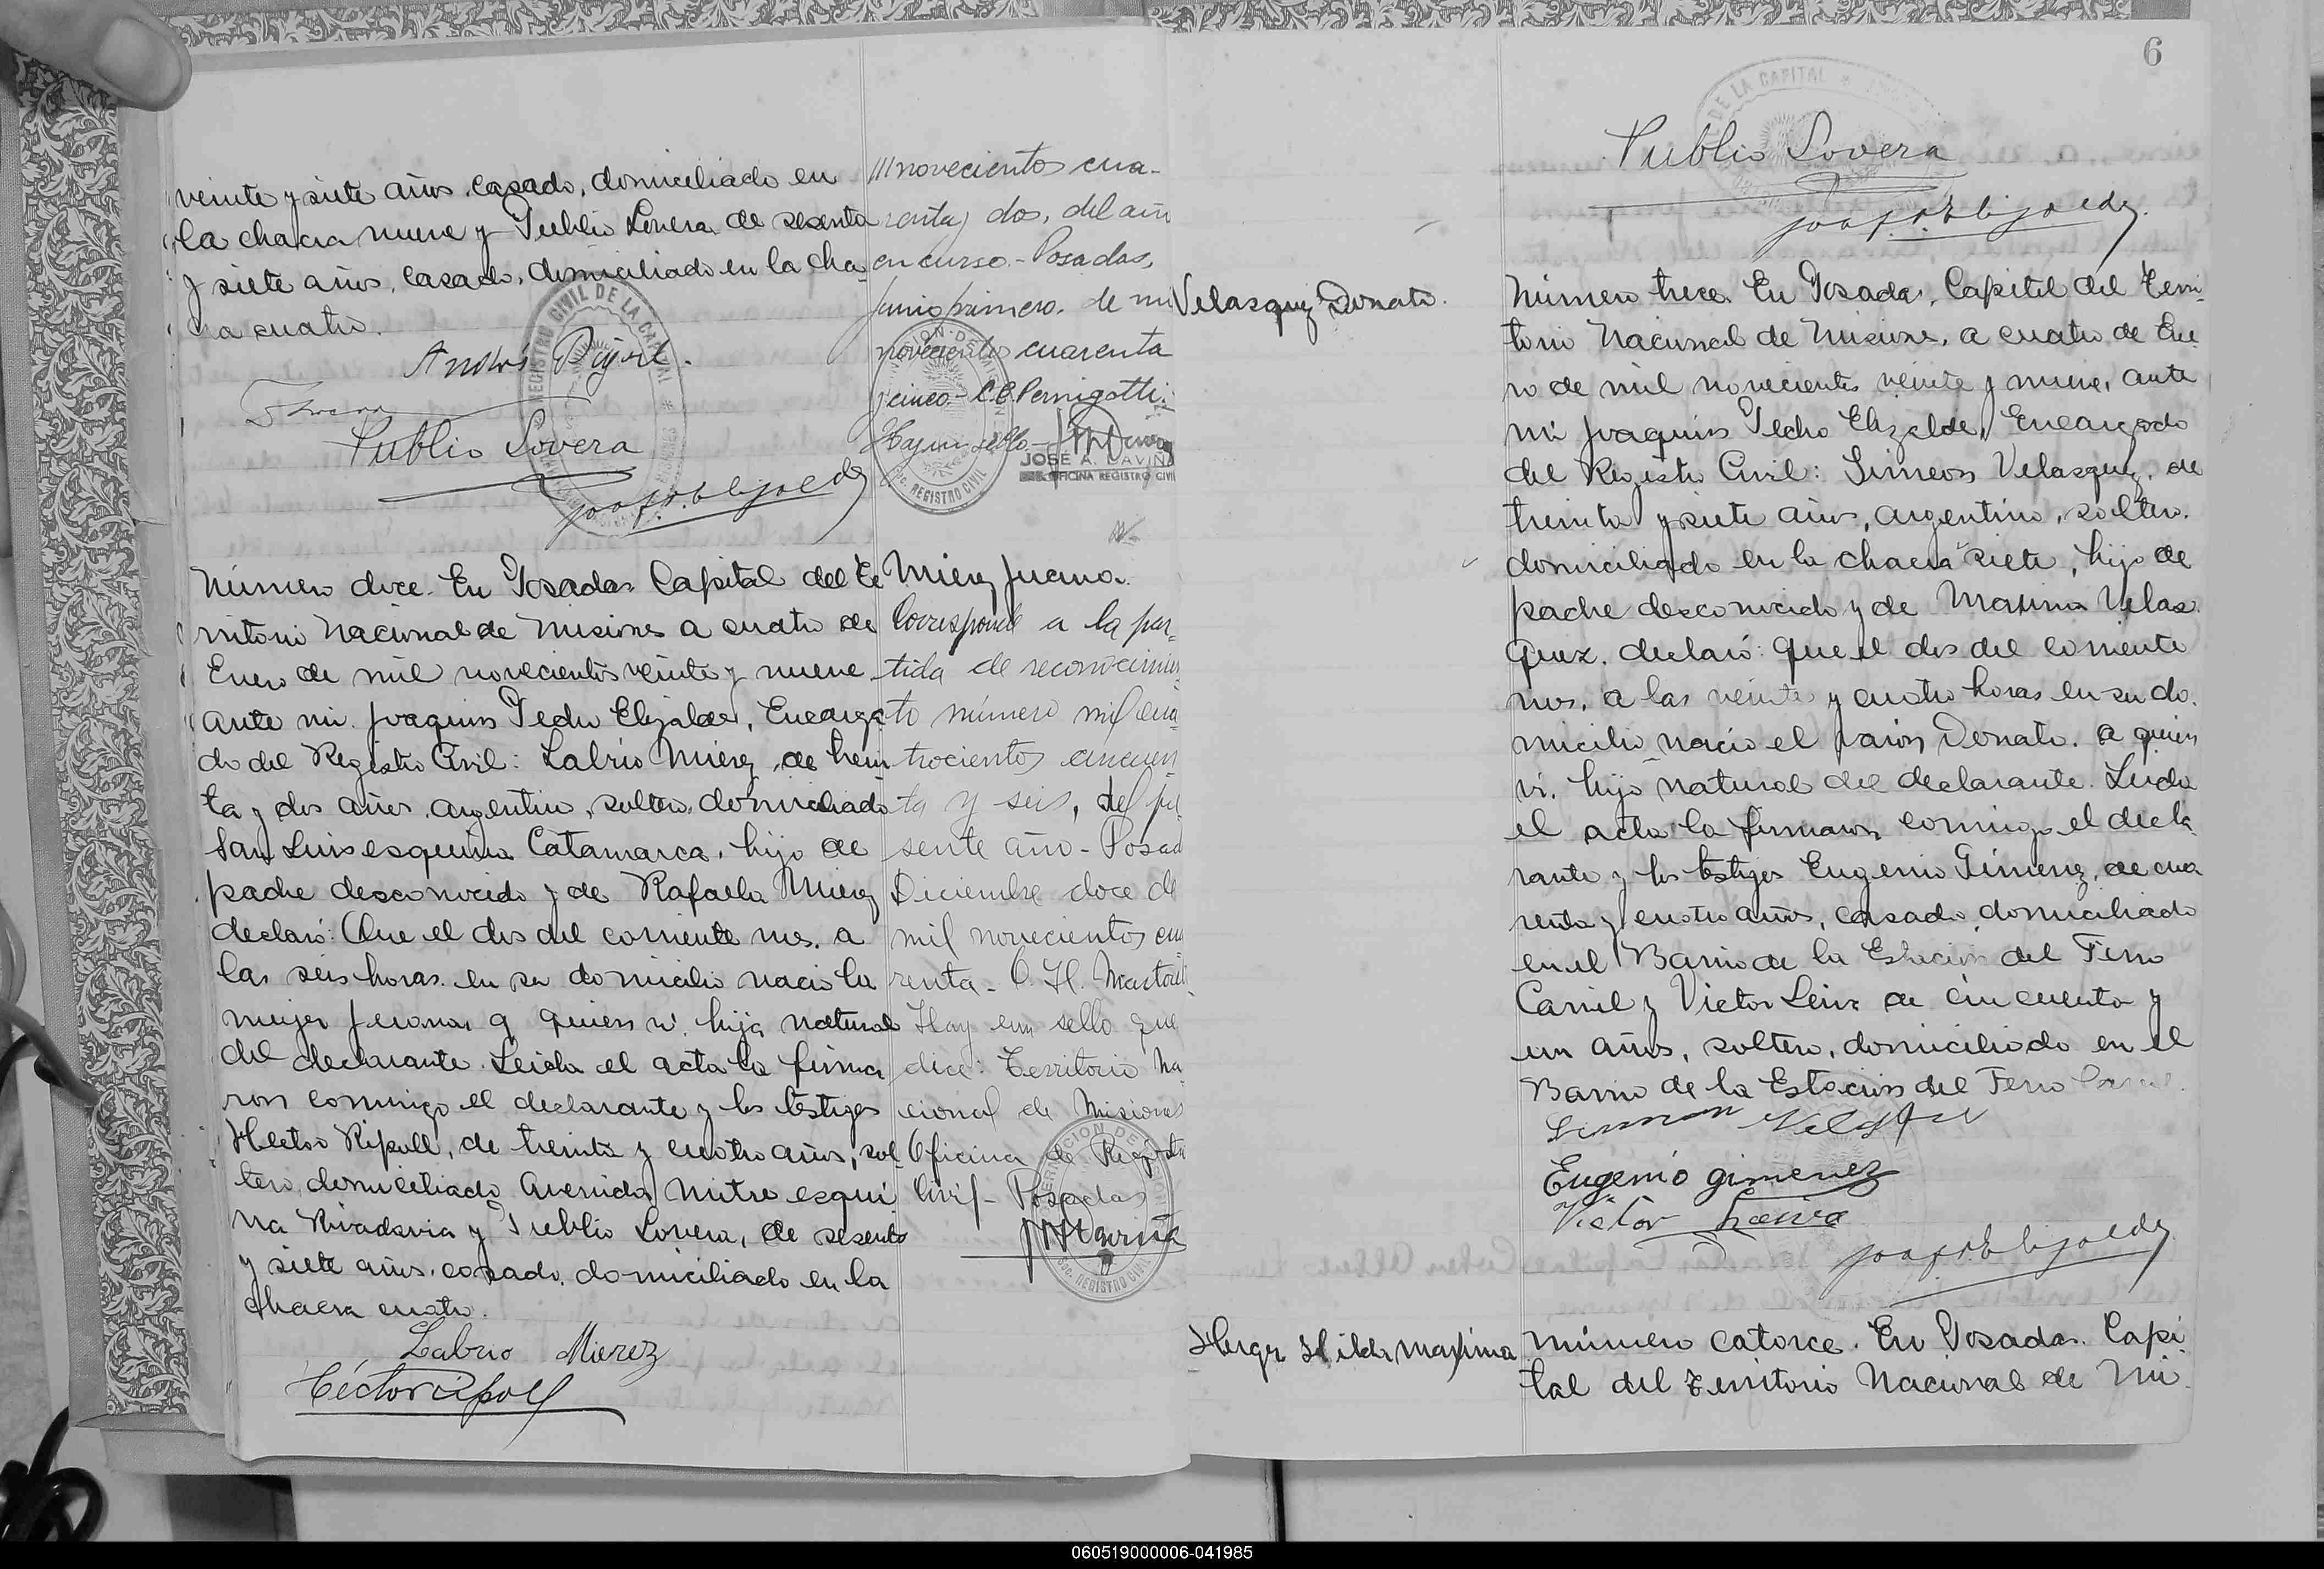 veinte y siete años, casado, domiciliado en
la chacra nueve y Publio Lovera, de sesenta
y siete años, casado, domiciliado en la cha
cra cuatro.
Publio Lovera
REGISTRO CIVIL DE LA CAPITAL
novecientos cua-
renta y dos, del año
en curso.- Posadas,
Junio primero, de mil
novecientos cuarenta
y cinco.- C.C. Pernigotti.
Hay un sello.-
JOSE A. DAVIÑA
OFICINA REGISTRO CIVIL
REGISTRO CIVIL
Número doce. En Posadas Capital del Te
rritorio Nacional de Misiones a cuatro de
Enero de mil novecientos veinte y nueve
ante mi Joaquin Pedro Elizalde, Encarga
do del Registro Civil: Labrio Mierez, de trein
ta y dos años, argentino, soltero, domiciliado
San Luis esquina Catamarca, hijo de
padre desconocido y de Rafaela Mierez
declaró: Que el dos del corriente mes, a
las seis horas en su domicilio nació la
mujer Juana, a quien vi, hija natural
del declarante. Leida el acta la firma
ron conmigo el declarante y los testigos
Hector Ripoll, de treinta y cuatro años, sol
tero, domiciliado Avenida Mitre esqui
na Rivadavia y Publio Lovera, de sesenta
y siete años, casado, domiciliado en la
chacra cuatro.
Labrio Mierez
Hector Ripoll
Mierez Juana.
Corresponde a la par-
tida de reconocimien
to número mil cua
trocientos cincuen
ta y seis, del pre
sente año - Posadas
Diciembre doce de
mil novecientos cua
renta -
Hay un sello que
dice: Territorio Na-
cional de Misiones
Oficina de Registro
Civil - Posadas
REGISTRO CIVIL
6
DE LA CAPITAL
Publio Lovera
Velasquez Donato.
Número trece. En Posadas, Capital del Terri-
torio Nacional de Misiones, a cuatro de Ene
ro de mil novecientos veinte y nueve, ante
mi Joaquin Pedro Elizalde, Encargado
del Registro Civil: Simeon Velasquez, de
treinta y siete años, argentino, soltero,
domiciliado en la chacra siete, hijo de
padre desconocido y de Maxima Velas
quez, declaró: que el dos del corriente
mes, a las veinte y cuatro horas en su do
micilio nació el varon Donato, a quien
vi, hijo natural del declarante. Leida
el acta la firmaron conmigo el decla
rante y los testigos Eugenio Gimenez, de cua
renta y cuatro años, casado, domiciliado
en el Barrio de la Estacion del Ferro
Carril y Victor Leiva de cincuenta y
un años, soltero, domiciliado en el
Barrio de la Estacion del Ferro Carril.
Simeon Velasquez
Eugenio Gimenez
Victor Leiva
Hilda Maxima
Número catorce. En Posadas. Capi
tal del Territorio Nacional de Mi
060519000006-041985